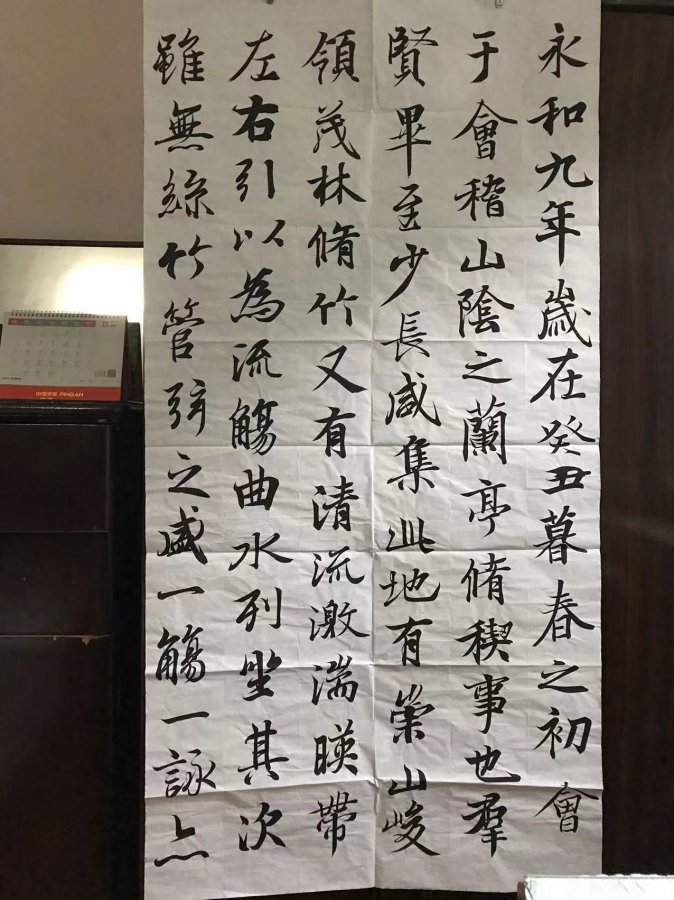 永和九年歲在癸丑暮春之初會
于會稽山陰之蘭亭脩稧事也羣
賢畢至少長咸集此地有崇山峻
領茂林脩竹又有清流激湍暎帶
左右引以為流觴曲水列坐其次
雖無絲竹管弦之盛一觴一詠亦
中国平安 PING AN